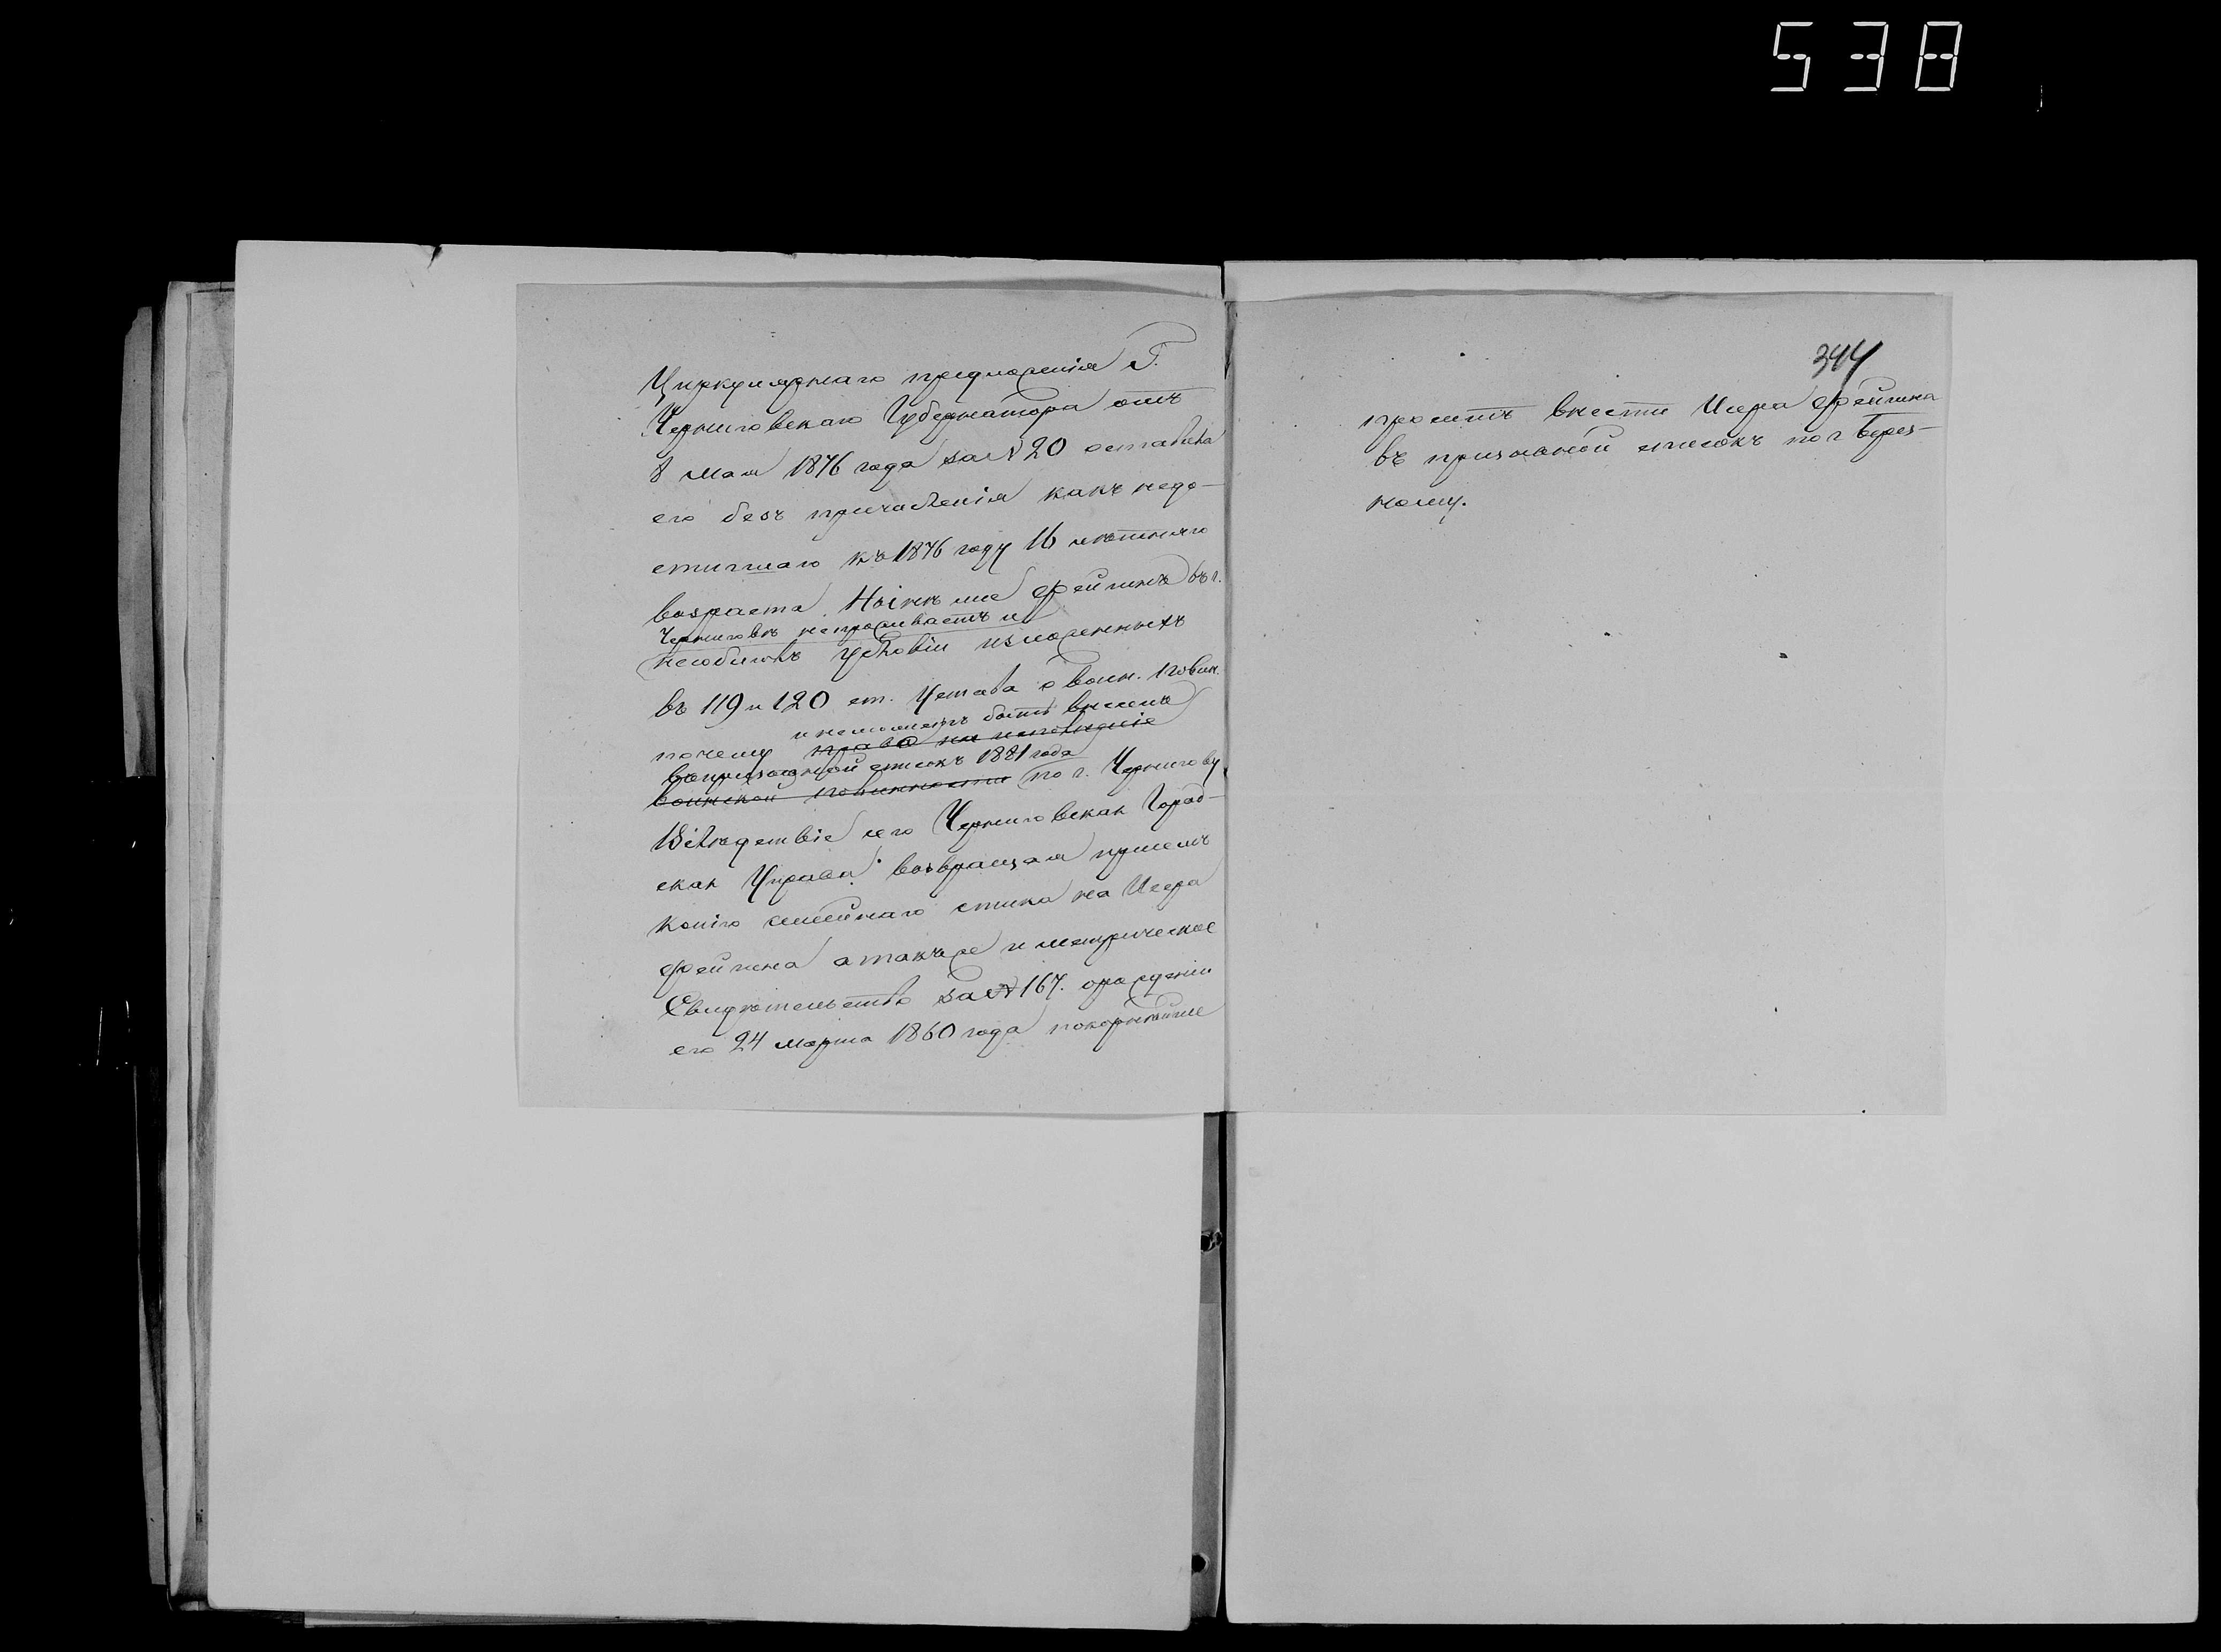 538
Циркулярнаго предложенія Г.
Черниговскаго Губернатора отъ
8 Мая 1876 года за № 20 оставила
его безъ причисленія какъ недо-
стигшаго къ 1876 году 16 лѣтняго
возраста. Нынѣ же Фейгинъ въ г.
Черниговѣ непроживаетъ и
несоблюлъ условій изложенныхъ
въ 119 и 120 ст. Устава о воин. повин.
и неможетъ быть внесенъ
почему право на
въ призывной списокъ 1881 года
воинской повинности по г. Чернигову.
Вслѣдствіе сего Черниговская Город-
ская Управа возвращая при семъ
копію семейнаго списка на Исера
Фейгина а также и метрическое
Свидѣтельство за № 167. о рожденіи
его 24 Марта 1860 года покорнѣйше
344
проситъ внести Исера Фейгина
въ призывной списокъ по г. Берез-
ному.